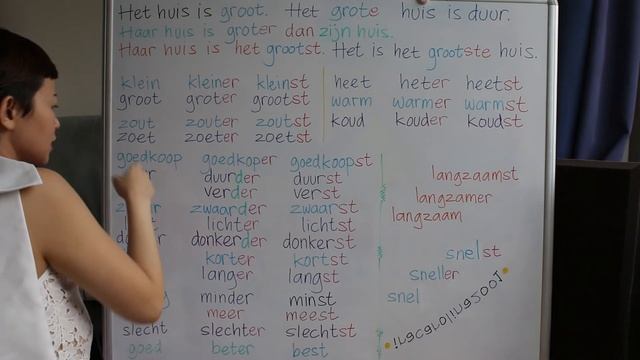 Het huis is groot. Het grote huis is duur.
Haar huis is groter dan zijn huis.
Haar huis is het grootst. Het is het grootste huis.
klein kleiner kleinst heet heter heetst
groot groter grootst warm warmer warmst
zout zouter zoutst koud kouder koudst
zoet zoeter zoetst
goedkoop goedkoper goedkoopst
duurder duurst
verder verst
zwaarder zwaarst
lichter lichtst
donkerder donkerst
korter kortst
langer langst
minder minst
meer meest
slecht slechter slechtst
goed beter best
langzaamst
langzamer
langzaam
snelst
sneller
snel